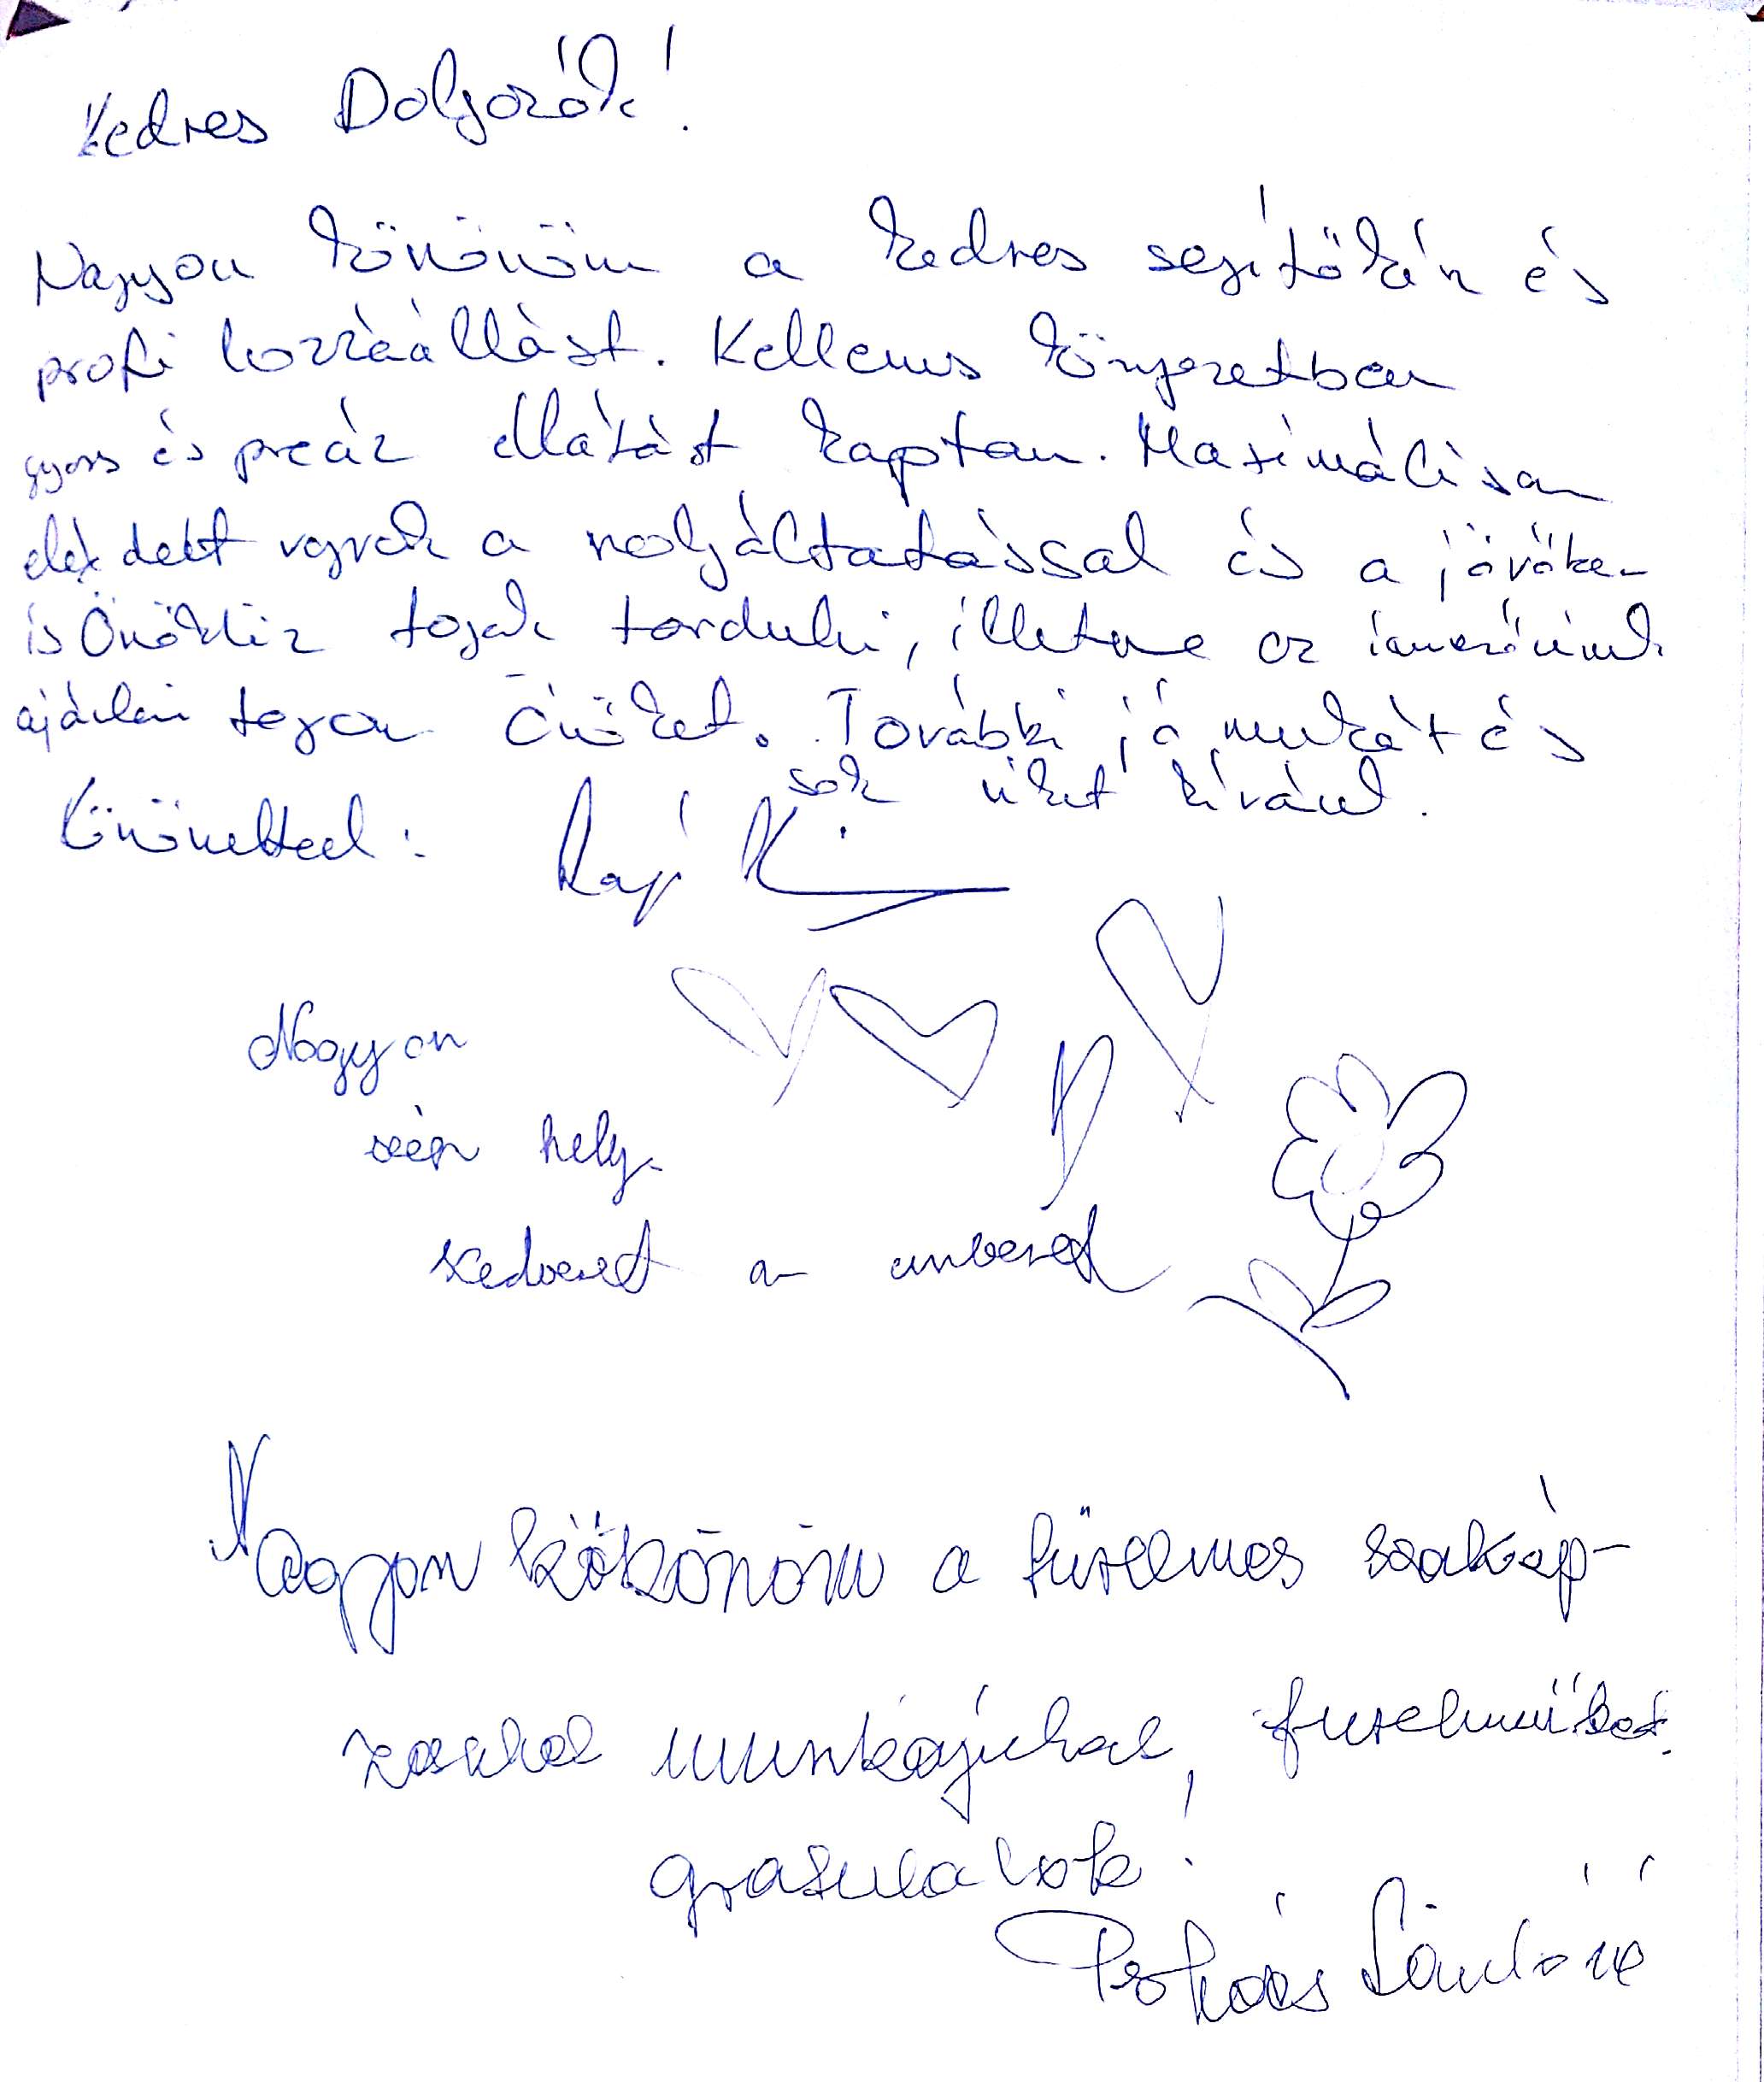 Kedves Dolgozók!
Nagyon köszönöm a kedves segítőkész és
profi hozzáállást. Kellemes környezetben
gyors és precíz ellátást kaptam. Maximálisan
elégedett vagyok a szolgáltatással és a jövőben
is Önökhöz fogok fordulni, illetve az ismerőseimnek
ajánlani fogom Önöket. További jó munkát és
sok sikert kívánok.
Köszönettel:
Nagyon
szép hely
kedvesek az emberek
Nagyon köszönöm a türelmes szakkép-
munkájukat, türelmüket.
gratulálok!